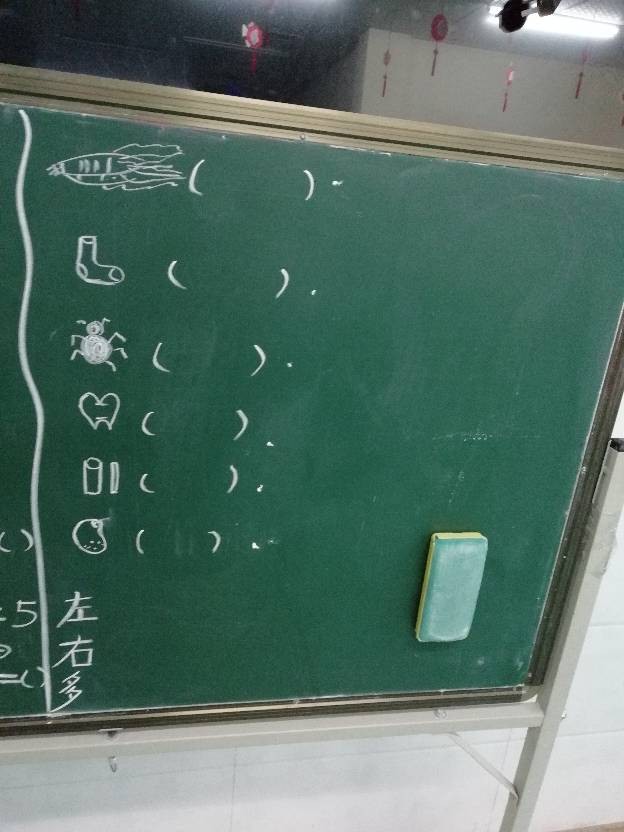 ( ).
( ).
( ).
( ).
( ).
( ) ( ).
5 左
右
=( ) 多